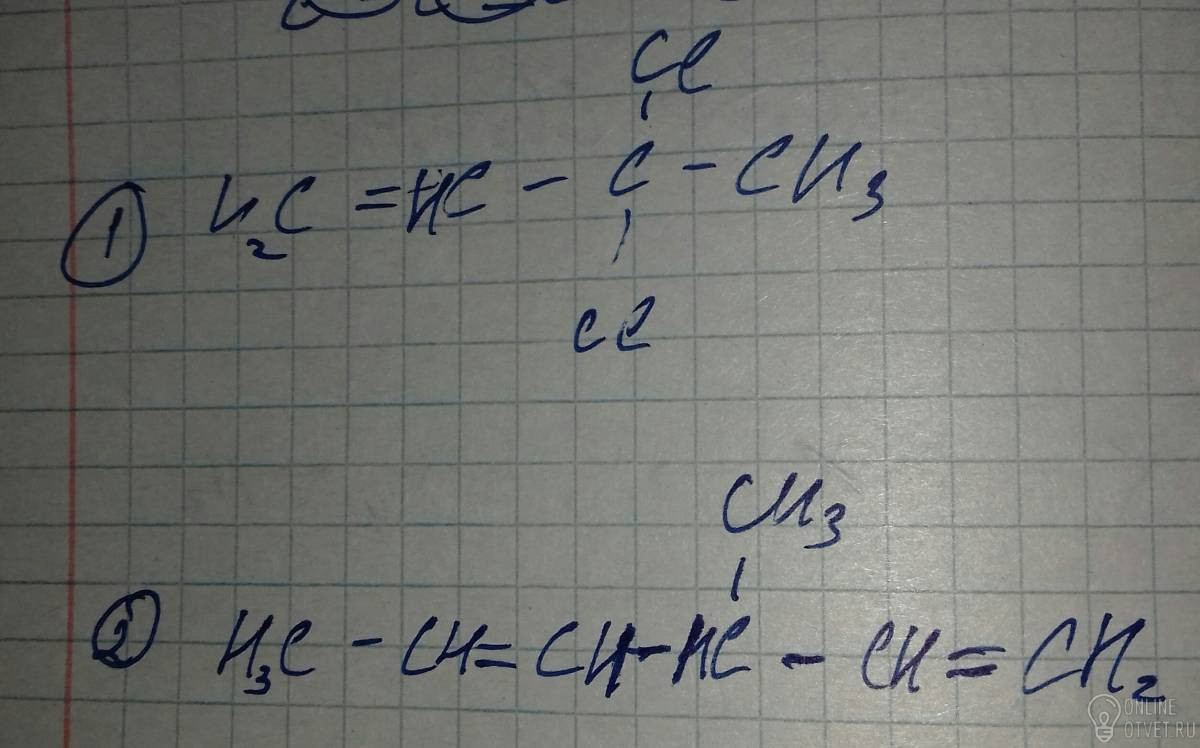 Cl
① H₂C = HC - C - CH₃
Cl
CH₃
② H₃C - CH = CH - HC - CH = CH₂
ONLINE
OTVET.RU